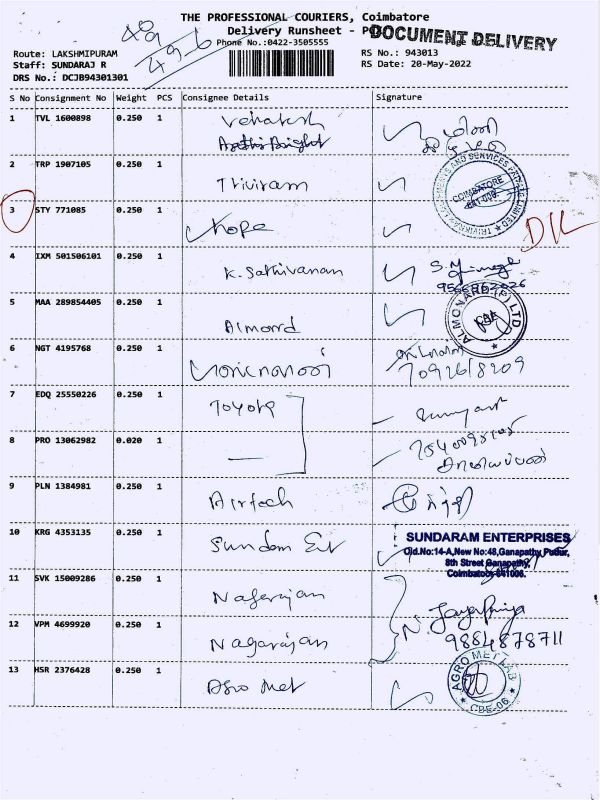 THE PROFESSIONAL COURIERS, Coimbatore
Delivery Runsheet - P
DOCUMENT DELIVERY
Phone No.:0422-3505555
Route: LAKSHMIPURAM
Staff: SUNDARAJ R
DRS No.: DCJB94301301
RS No.: 943013
RS Date: 20-May-2022
49
49-6
S No Consignment No Weight PCS Consignee Details Signature
1 TVL 1600898 0.250 1 Venkatesh
2 TRP 1907105 0.250 1 Triviram
COIMBATORE
3 STY 771085 0.250 1 hope
DL
4 IXM 501506101 0.250 1 K. Sathivanan
5 MAA 289854405 0.250 1 Almond
ALMONARD (P) LTD
CBE
6 NGT 4195768 0.250 1
7092618209
7 EDQ 25550226 0.250 1 Toyota
8 PRO 13062982 0.020 1
9 PLN 1384981 0.250 1 Airtech
10 KRG 4353135 0.250 1 Sundaram Ent
SUNDARAM ENTERPRISES
Old.No:14-A,New No:48,Ganapathy Pudur,
8th Street Ganapathy,
Coimbatore-641006.
11 SVK 15009286 0.250 1 Nagarajan
N. Jayapriya
12 VPM 4699920 0.250 1 Nagarajan
9884878711
13 HSR 2376428 0.250 1 Agro Met
AGRO MET LAB
CBE-06